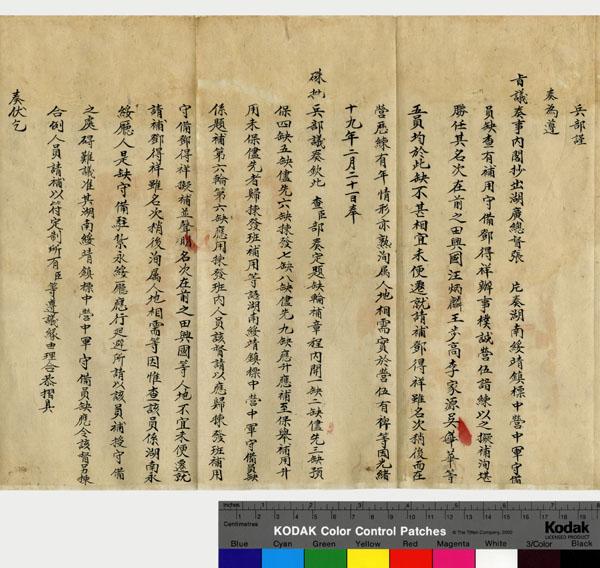 兵部謹
奏為遵
旨議奏事內閣抄出湖廣總督張 片奏湖南綏靖鎮標中營中軍守備
員缺查有補用守備鄧得祥辦事樸誠營伍諳練以之擬補洵堪
勝任其名次在前之田興國汪炳麟王步高李家源吳 華等
五員均於此缺不甚相宜未便遷就請補鄧得祥雖名次稍後而在
營歷練有年情形亦熟洵屬人地相需實於營伍有裨等因光緒
十九年二月二十日奉
硃批兵部議奏欽此查臣部奏定題缺輪補章程內開一缺二缺儘先三缺預
保四缺五缺儘先六缺揀發七缺八缺儘先九缺應升應補至保舉補用升
用未保儘先者歸揀發班補用等語湖南綏靖鎮標中營中軍守備員缺
係題補第六輪第六缺應用揀發班內人員該督請以應歸揀發班補用
守備鄧得祥擬補並聲明名次在前之田興國等人地不宜未便遷就
請補鄧得祥雖名次稍後洵屬人地相需等因惟查該員係湖南永
綏廳人是缺守備駐紮永綏廳應行迴避所請以該員補授守備
之處礙難議准其湖南綏靖鎮標中營中軍守備員缺應令該督另揀
合例人員請補以符定制所有臣等遵議緣由理合恭摺具
奏伏乞
Inches
Centimetres
KODAK Color Control Patches
© The Tiffen Company, 2000
Kodak
LICENSED PRODUCT
Blue Cyan Green Yellow Red Magenta White 3/Color Black